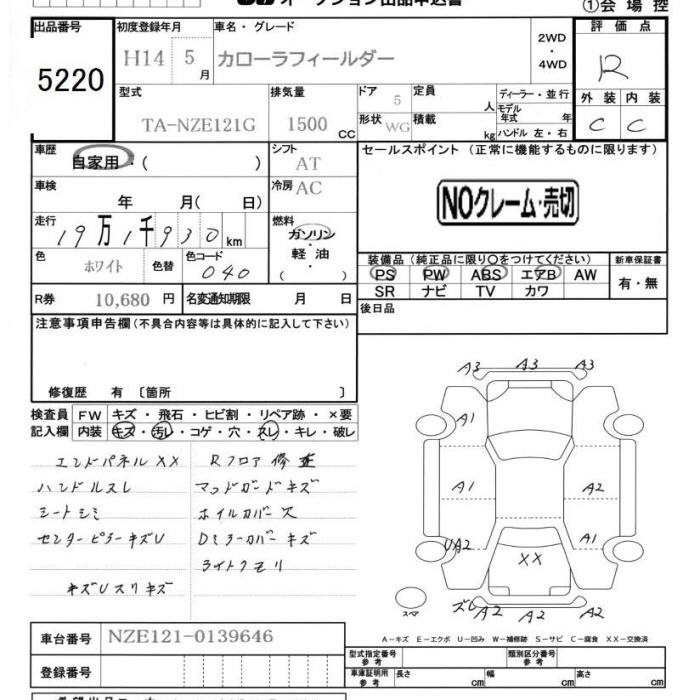 オークション出品申込書
①会場控
出品番号
5220
初度登録年月
H14 5月
車名・グレード
カローラフィールダー
2WD
・
4WD
評価点
R
外装 内装
C C
型式
TA-NZE121G
排気量
1500 CC
ドア 5
形状 WG
定員 人
積載 kg
ディーラー・並行
モデル年式 年
ハンドル 左・右
車歴
自家用・( )
シフト AT
車検
年 月( 日)
冷房 AC
走行
19万1千930km
燃料
ガソリン
・
軽油
・
( )
色 ホワイト
色替
色コード 040
R券 10,680円
名変通知期限 月 日
セールスポイント (正常に機能するものに限ります)
NOクレーム・売切
装備品 (純正品に限り○をつけてください)
PS PW ABS エアB AW
SR ナビ TV カワ
新車保証書
有・無
後日品
注意事項申告欄(不具合内容等は具体的に記入して下さい)
修復歴 有〔箇所 〕
検査員記入欄
FW キズ・飛石・ヒビ割・リペア跡・×要
内装 キズ・汚レ・コゲ・穴・スレ・キレ・破レ
エンドパネルXX Rフロア修正
ハンドルスレ マッドガードキズ
シートシミ ホイルカバー欠
センターピラーキズU Dミラーカバーキズ
ライトクモリ
キズUスリキズ
A3 A3 A3
A1
A1 A2
UA2 A1
XX
スペア
ズレ A2 A2 A2
A-キズ E-エクボ U-凹み W-補修跡 S-サビ C-腐食 XX-交換済
車台番号 NZE121-0139646
登録番号
型式指定番号 参考
類別区分番号 参考
車庫証明用 参考
長さ cm 幅 cm 高さ cm